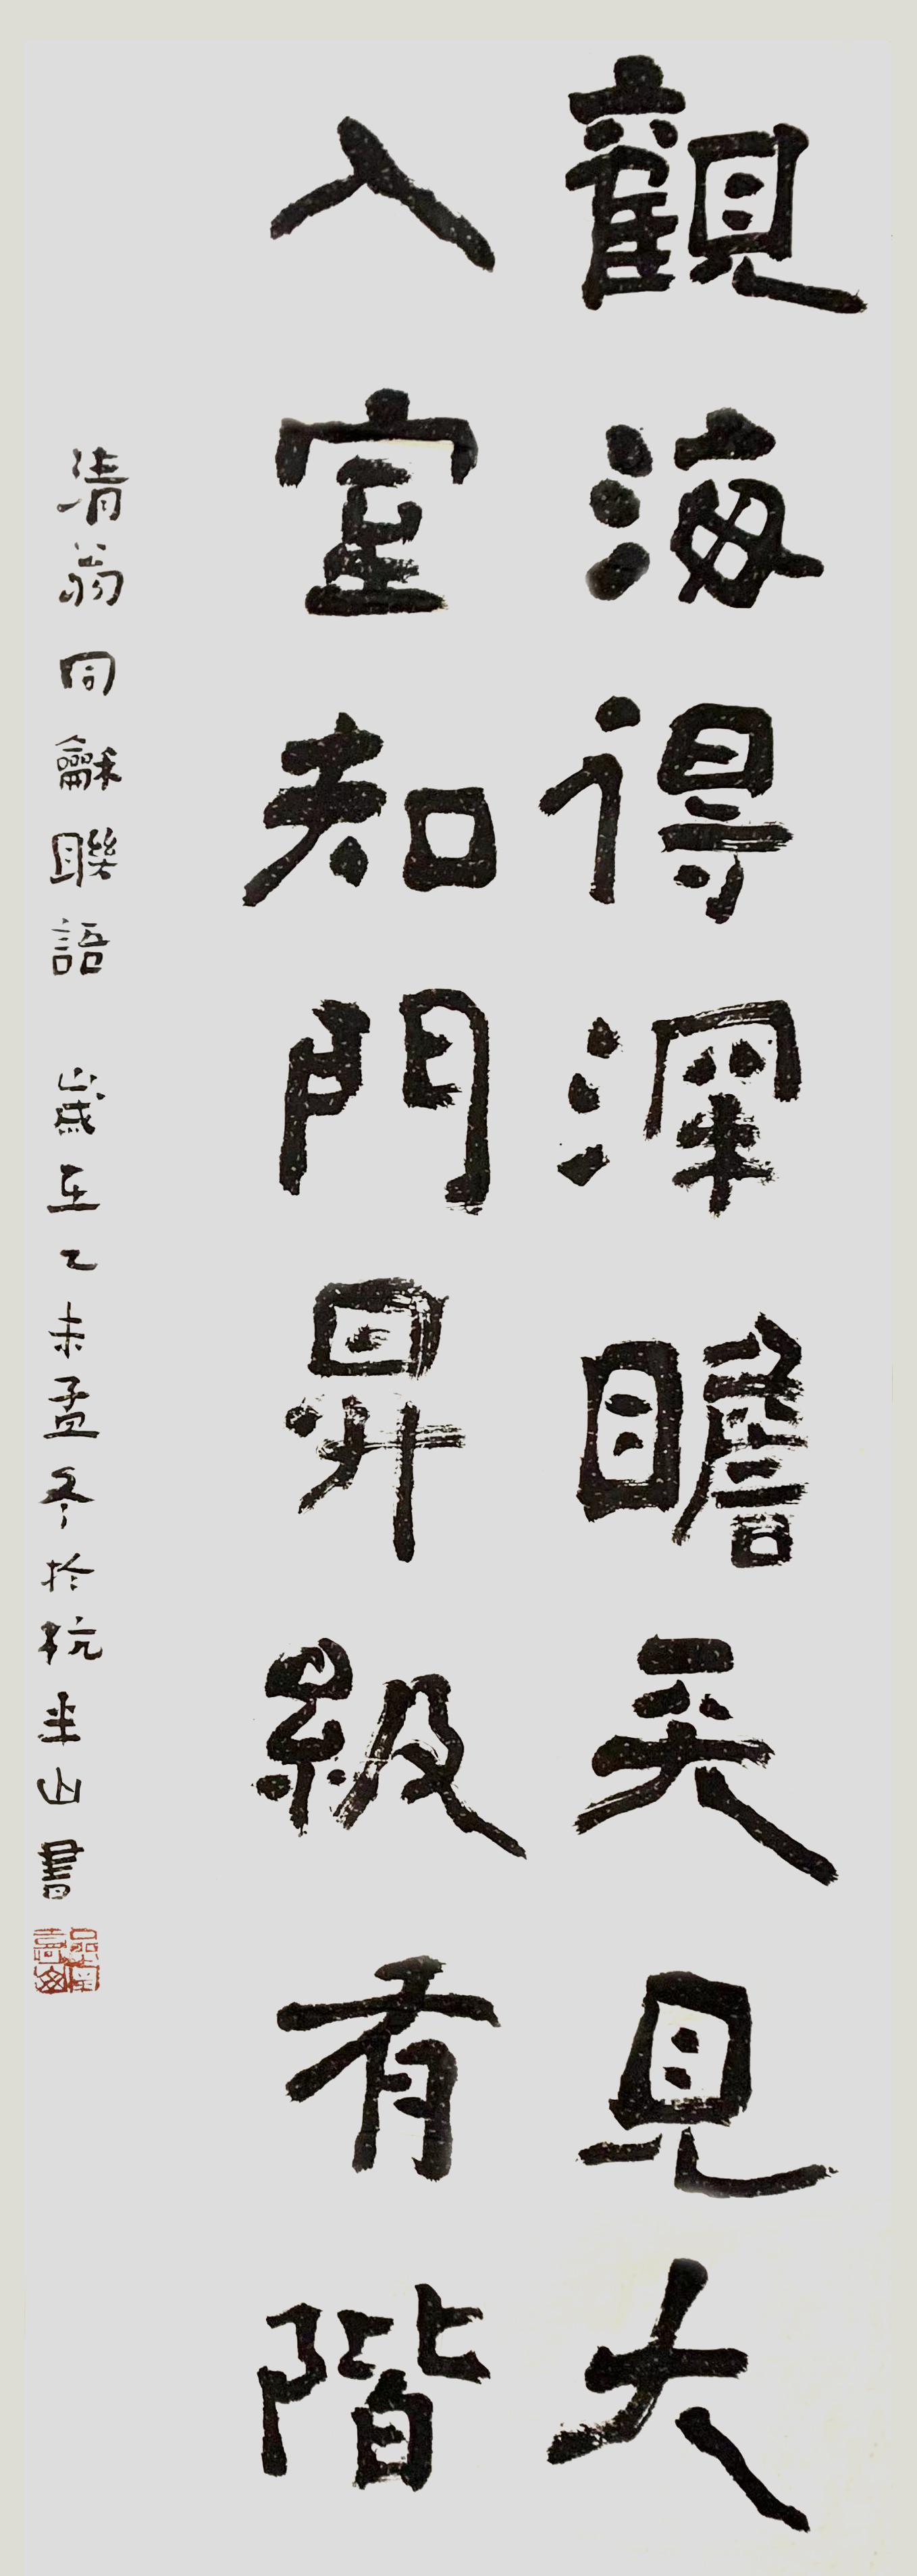 觀海得深瞻天見大
入室知門昇級有階
清翁同龢聯語 歲在乙未孟冬於杭半山書